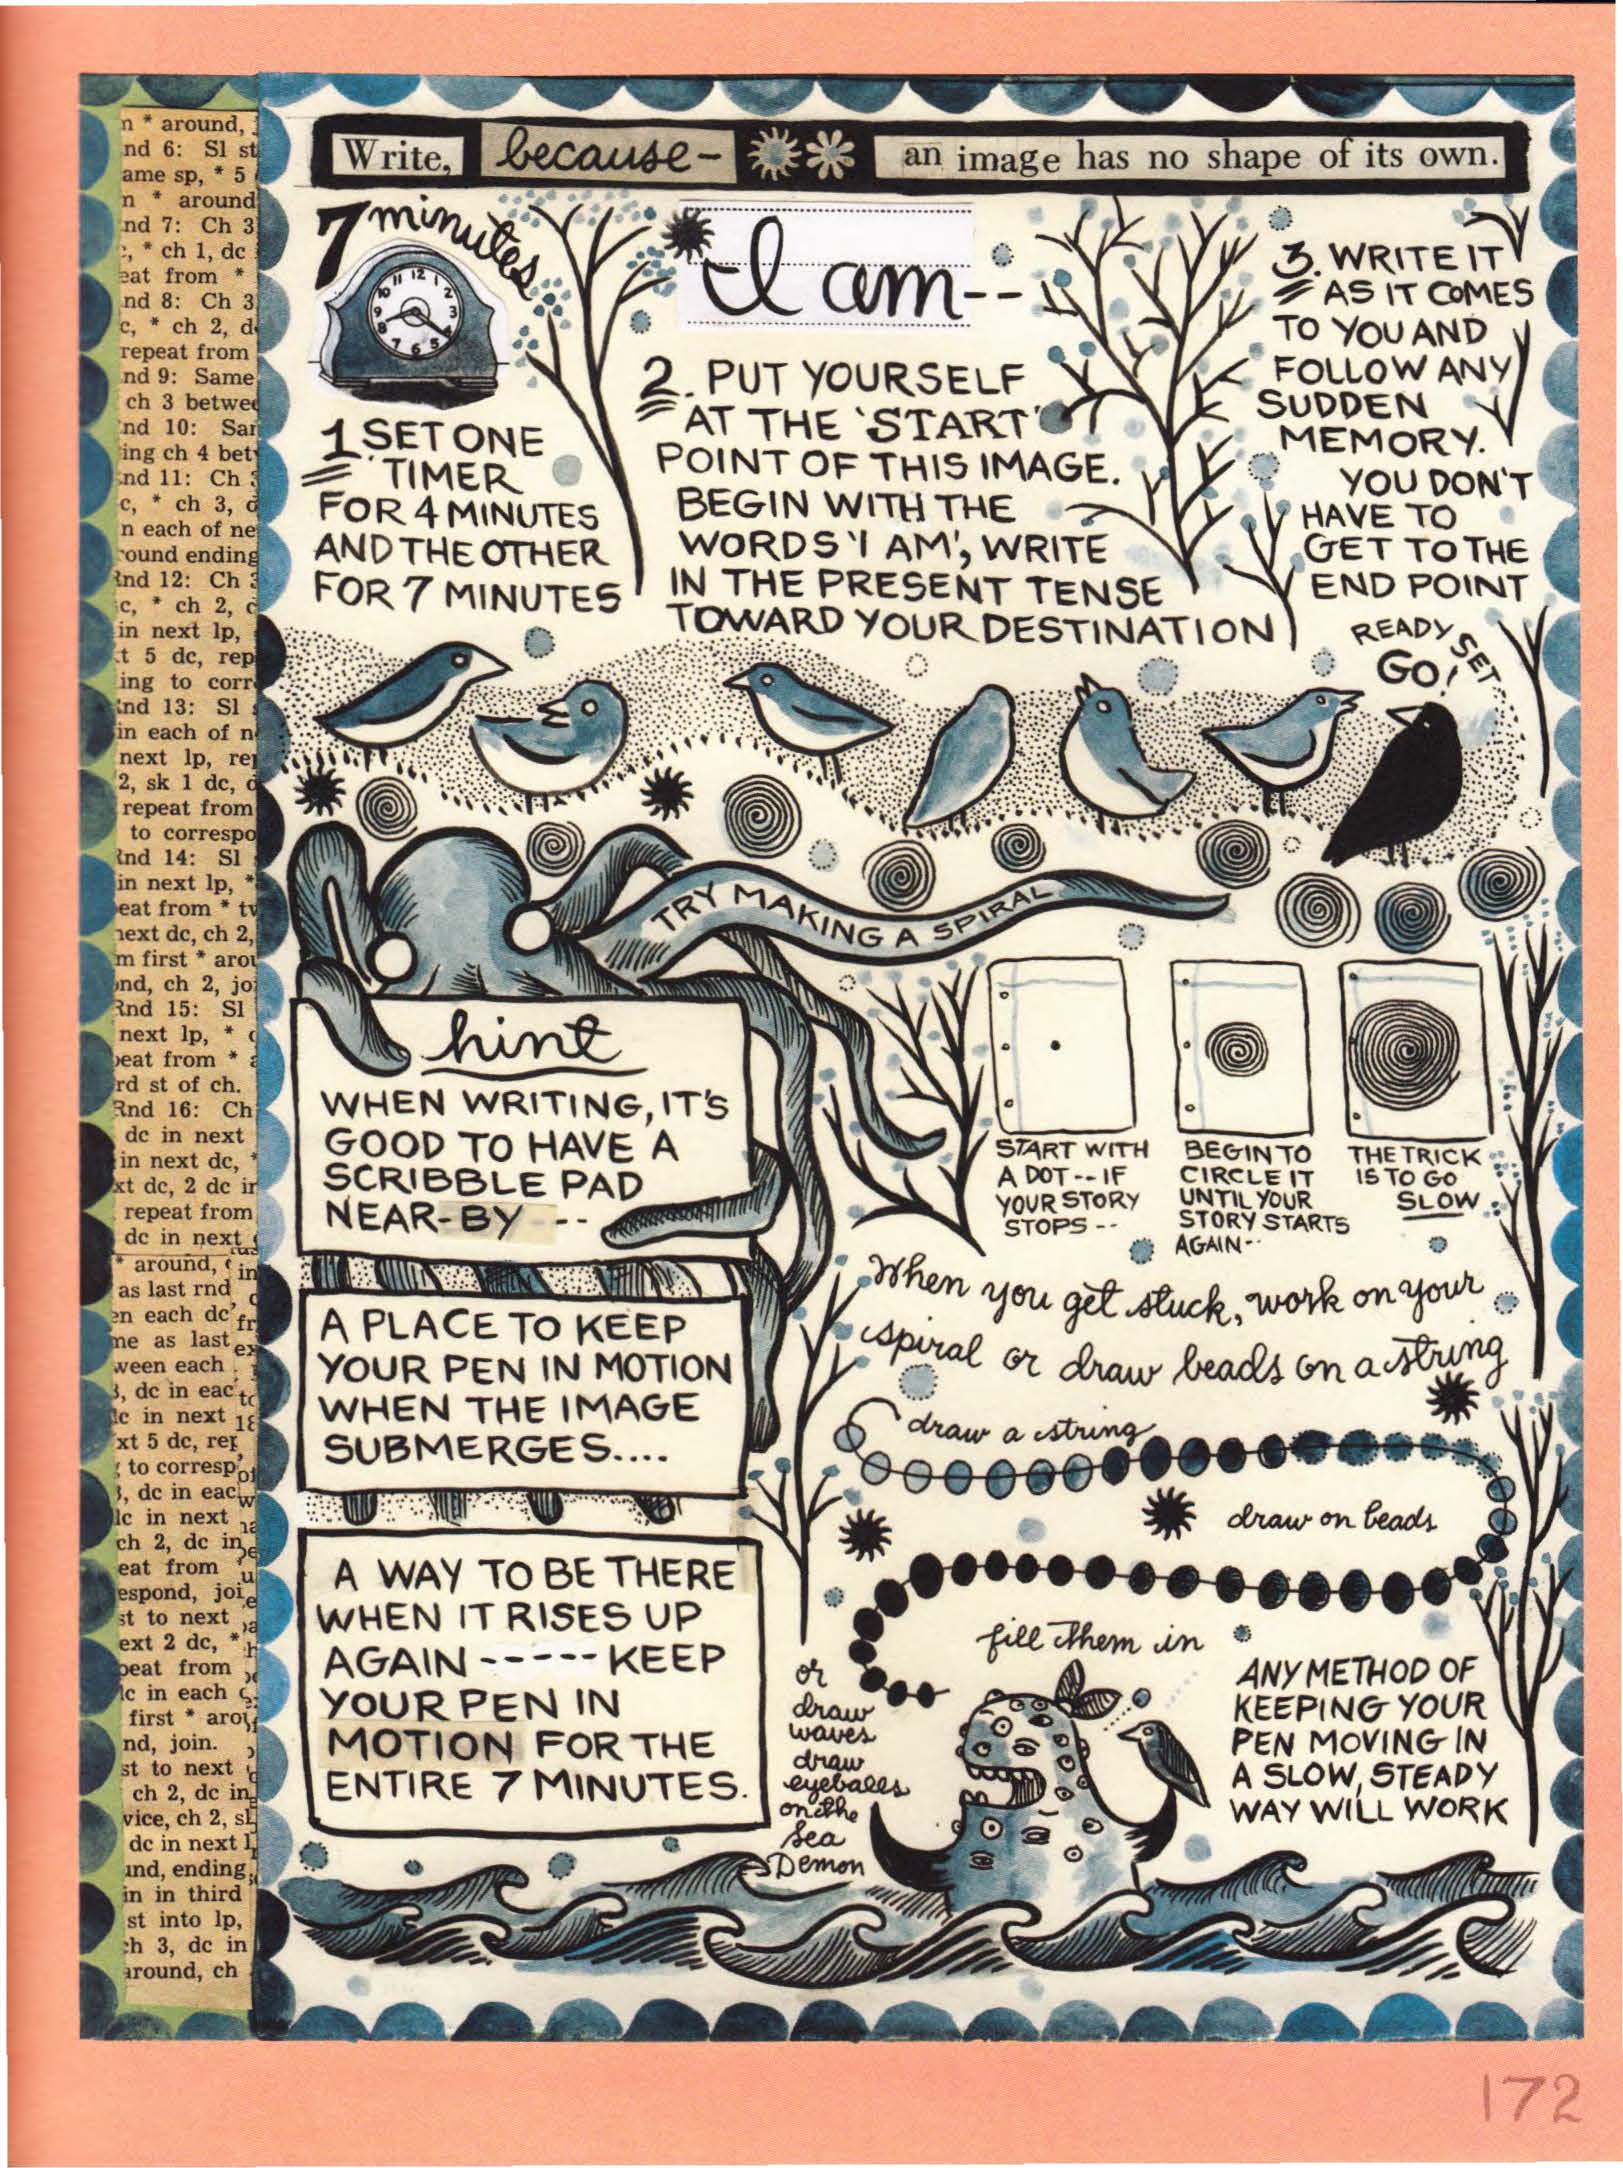 Write, because- an image has no shape of its own.
7 minutes
11 12 1
10 2
9 3
8 4
7 6 5
I am--
1. SET ONE
TIMER
FOR 4 MINUTES
AND THE OTHER
FOR 7 MINUTES
2. PUT YOURSELF
AT THE 'START'
POINT OF THIS IMAGE.
BEGIN WITH THE
WORDS 'I AM', WRITE
IN THE PRESENT TENSE
TOWARD YOUR DESTINATION
3. WRITE IT
AS IT COMES
TO YOU AND
FOLLOW ANY
SUDDEN
MEMORY.
YOU DON'T
HAVE TO
GET TO THE
END POINT
READY SET
GO!
TRY MAKING A SPIRAL
hint
WHEN WRITING, IT'S
GOOD TO HAVE A
SCRIBBLE PAD
NEAR-BY --
A PLACE TO KEEP
YOUR PEN IN MOTION
WHEN THE IMAGE
SUBMERGES....
A WAY TO BE THERE
WHEN IT RISES UP
AGAIN ----- KEEP
YOUR PEN IN
MOTION FOR THE
ENTIRE 7 MINUTES.
START WITH
A DOT -- IF
YOUR STORY
STOPS --
BEGIN TO
CIRCLE IT
UNTIL YOUR
STORY STARTS
AGAIN--
THE TRICK
IS TO GO
SLOW
When you get stuck, work on your
spiral or draw beads on a string
draw a string
draw on beads
fill them in
or
draw
waves
draw
eyeballs
on the
Sea
Demon
ANY METHOD OF
KEEPING YOUR
PEN MOVING IN
A SLOW, STEADY
WAY WILL WORK
n * around,
nd 6: Sl st
ame sp, * 5
n * around
nd 7: Ch 3
, * ch 1, dc
eat from *
nd 8: Ch 3
c, * ch 2, d
repeat from
nd 9: Same
ch 3 betwe
nd 10: Sa
ing ch 4 bet
nd 11: Ch
c, * ch 3,
n each of ne
round ending
nd 12: Ch
c, * ch 2,
in next lp,
t 5 dc, rep
ing to corr
nd 13: Sl
in each of n
next lp, re
2, sk 1 dc,
repeat from
to correspo
nd 14: Sl
in next lp, *
eat from * tv
next dc, ch 2,
m first * arou
nd, ch 2, joi
Rnd 15: Sl
next lp, *
peat from *
rd st of ch.
Rnd 16: Ch
dc in next
in next dc,
xt dc, 2 dc in
repeat from
dc in next
* around,
as last rnd
en each dc
me as last
ween each
, dc in eac
c in next
xt 5 dc, rep
to corresp
, dc in eac
lc in next
ch 2, dc in
eat from
espond, joi
st to next
ext 2 dc, *
peat from
lc in each
first * arou
nd, join.
st to next
ch 2, dc in
vice, ch 2, sl
dc in next l
und, ending
in in third
st into lp,
ch 3, dc in
around, ch
172